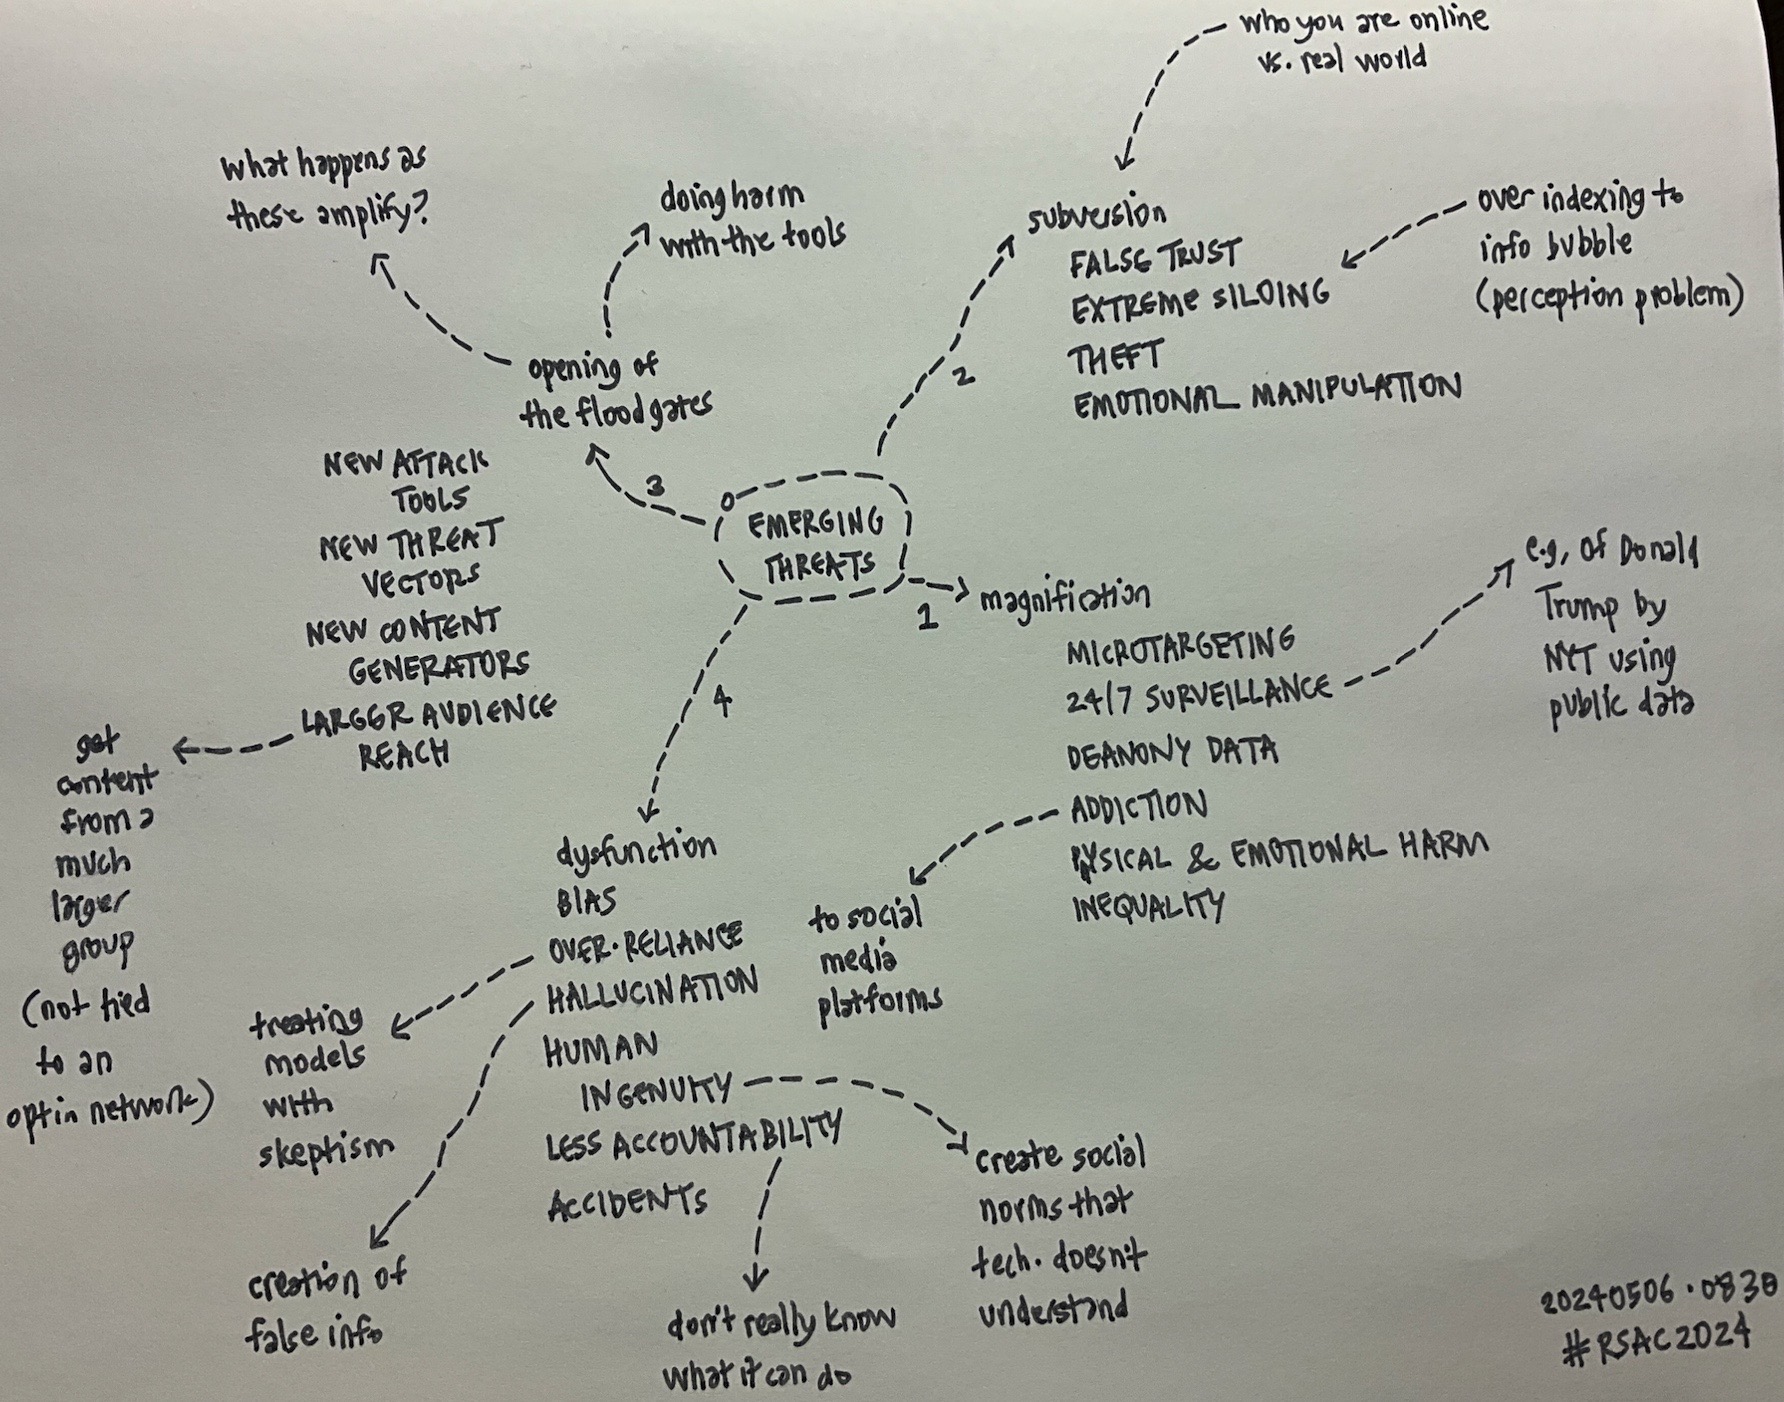 who you are online
vs. real world
what happens as
these amplify?
doing harm
with the tools
subversion
FALSE TRUST
EXTREME SILOING
THEFT
EMOTIONAL MANIPULATION
over indexing to
info bubble
(perception problem)
2
opening of
the floodgates
3
NEW ATTACK
TOOLS
NEW THREAT
VECTORS
NEW CONTENT
GENERATORS
LARGER AUDIENCE
REACH
get
content
from a
much
larger
group
(not tied
to an
opt in network)
EMERGING
THREATS
1
magnification
MICROTARGETING
24/7 SURVEILLANCE
DEANONY DATA
ADDICTION
PYSICAL & EMOTIONAL HARM
INEQUALITY
e.g, of Donald
Trump by
NYT using
public data
to social
media
platforms
4
dysfunction
BIAS
OVER-RELIANCE
HALLUCINATION
HUMAN
INGENUITY
LESS ACCOUNTABILITY
ACCIDENTS
treating
models
with
skeptism
creation of
false info
don't really know
what it can do
create social
norms that
tech. doesn't
understand
20240506 · 0830
#RSAC2024